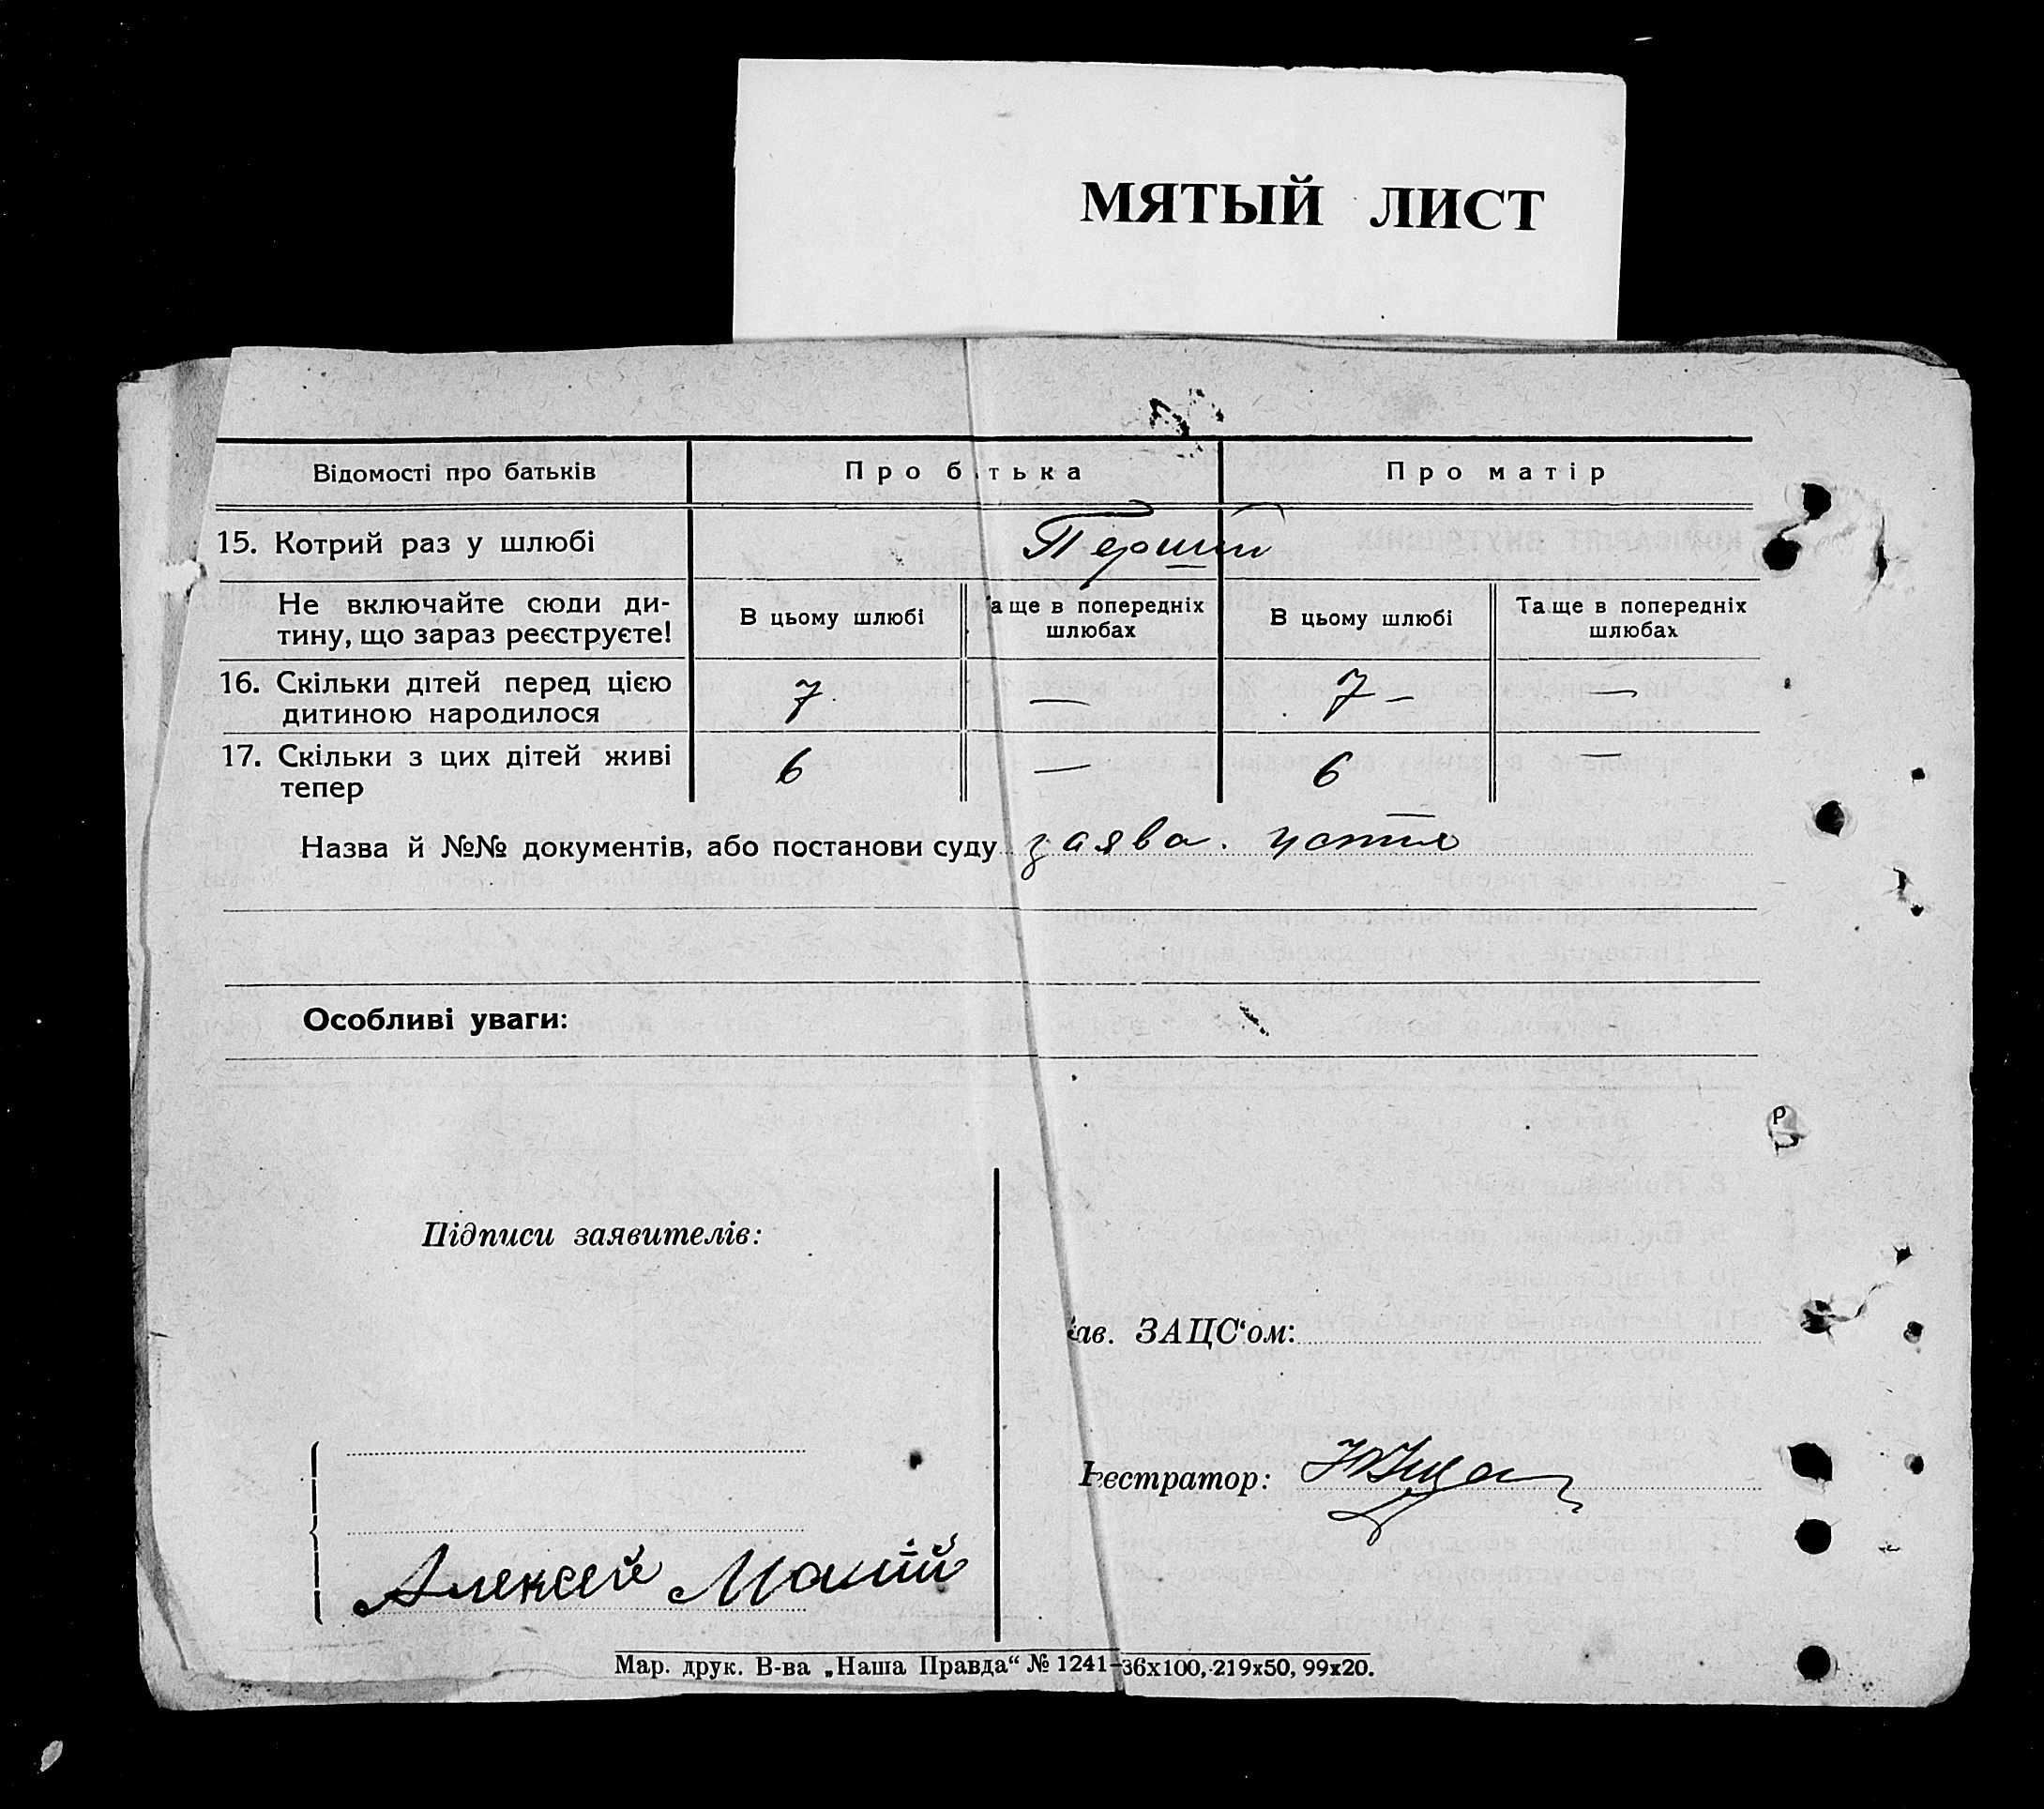 МЯТЫЙ ЛИСТ
Відомості про батьків
Про б тька
Про матір
15. Котрий раз у шлюбі
Перший
Не включайте сюди ди-
тину, що зараз реєструєте!
В цьому шлюбі
а ще в попередніх
шлюбах
В цьому шлюбі
Та ще в попередніх
шлюбах
16. Скільки дітей перед цією
дитиною народилося
7
—
7 —
—
17. Скільки з цих дітей живі
тепер
6
—
6
—
Назва й №№ документів, або постанови суду заява. устна
Особливі уваги:
Р
Підписи заявителів:
ав. ЗАЦС‘ом:
еєстратор:
Алексей
Мар. друк. В-ва „Наша Правда“ № 1241-36х100,-219х50, 99х20.